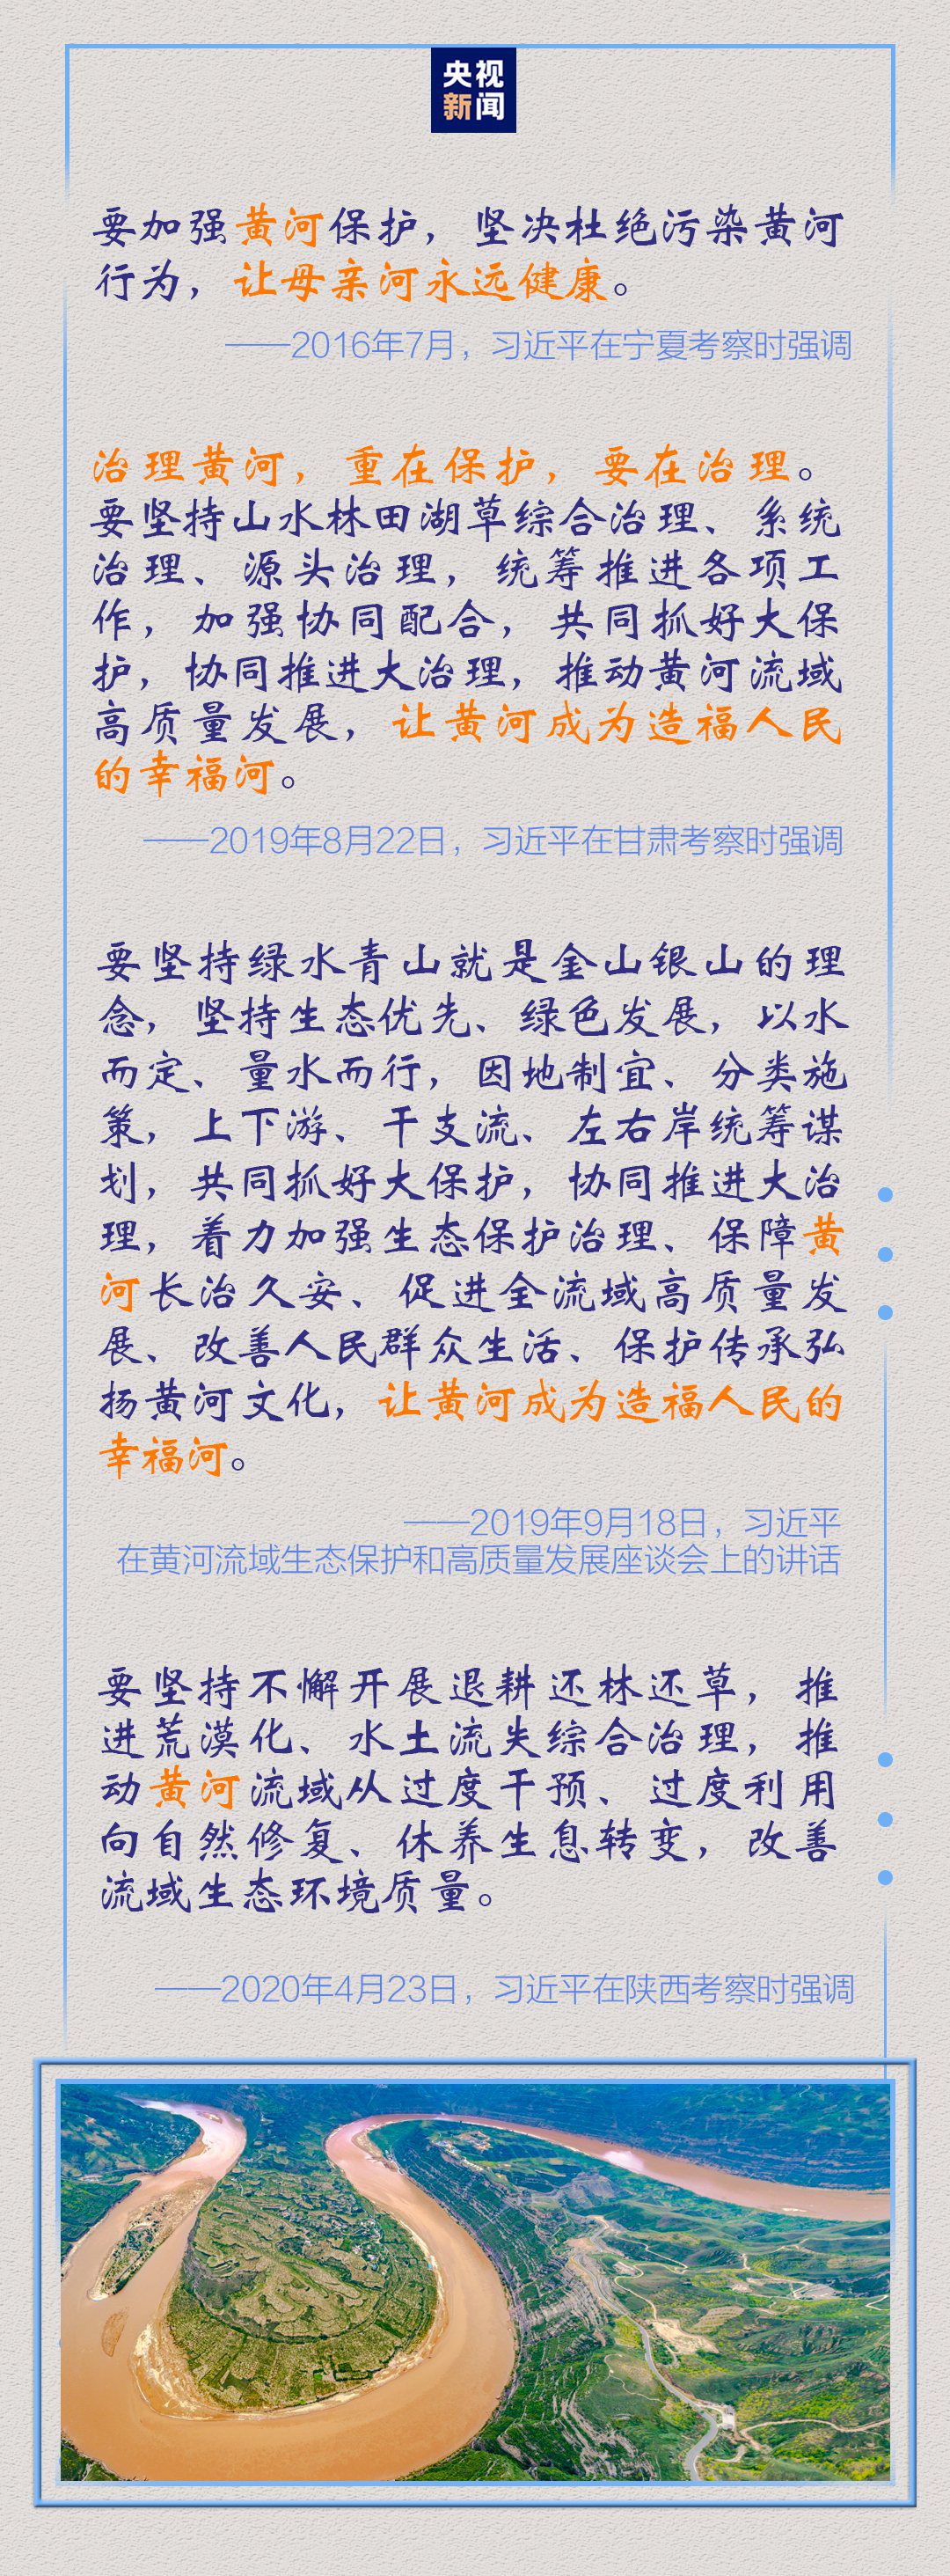 央视
新闻
要加强黄河保护，坚决杜绝污染黄河
行为，让母亲河永远健康。
——2016年7月，习近平在宁夏考察时强调
治理黄河，重在保护，要在治理。
要坚持山水林田湖草综合治理、系统
治理、源头治理，统筹推进各项工
作，加强协同配合，共同抓好大保
护，协同推进大治理，推动黄河流域
高质量发展，让黄河成为造福人民
的幸福河。
——2019年8月22日，习近平在甘肃考察时强调
要坚持绿水青山就是金山银山的理
念，坚持生态优先、绿色发展，以水
而定、量水而行，因地制宜、分类施
策，上下游、干支流、左右岸统筹谋
划，共同抓好大保护，协同推进大治
理，着力加强生态保护治理、保障黄
河长治久安、促进全流域高质量发
展、改善人民群众生活、保护传承弘
扬黄河文化，让黄河成为造福人民的
幸福河。
——2019年9月18日，习近平
在黄河流域生态保护和高质量发展座谈会上的讲话
要坚持不懈开展退耕还林还草，推
进荒漠化、水土流失综合治理，推
动黄河流域从过度干预、过度利用
向自然修复、休养生息转变，改善
流域生态环境质量。
——2020年4月23日，习近平在陕西考察时强调